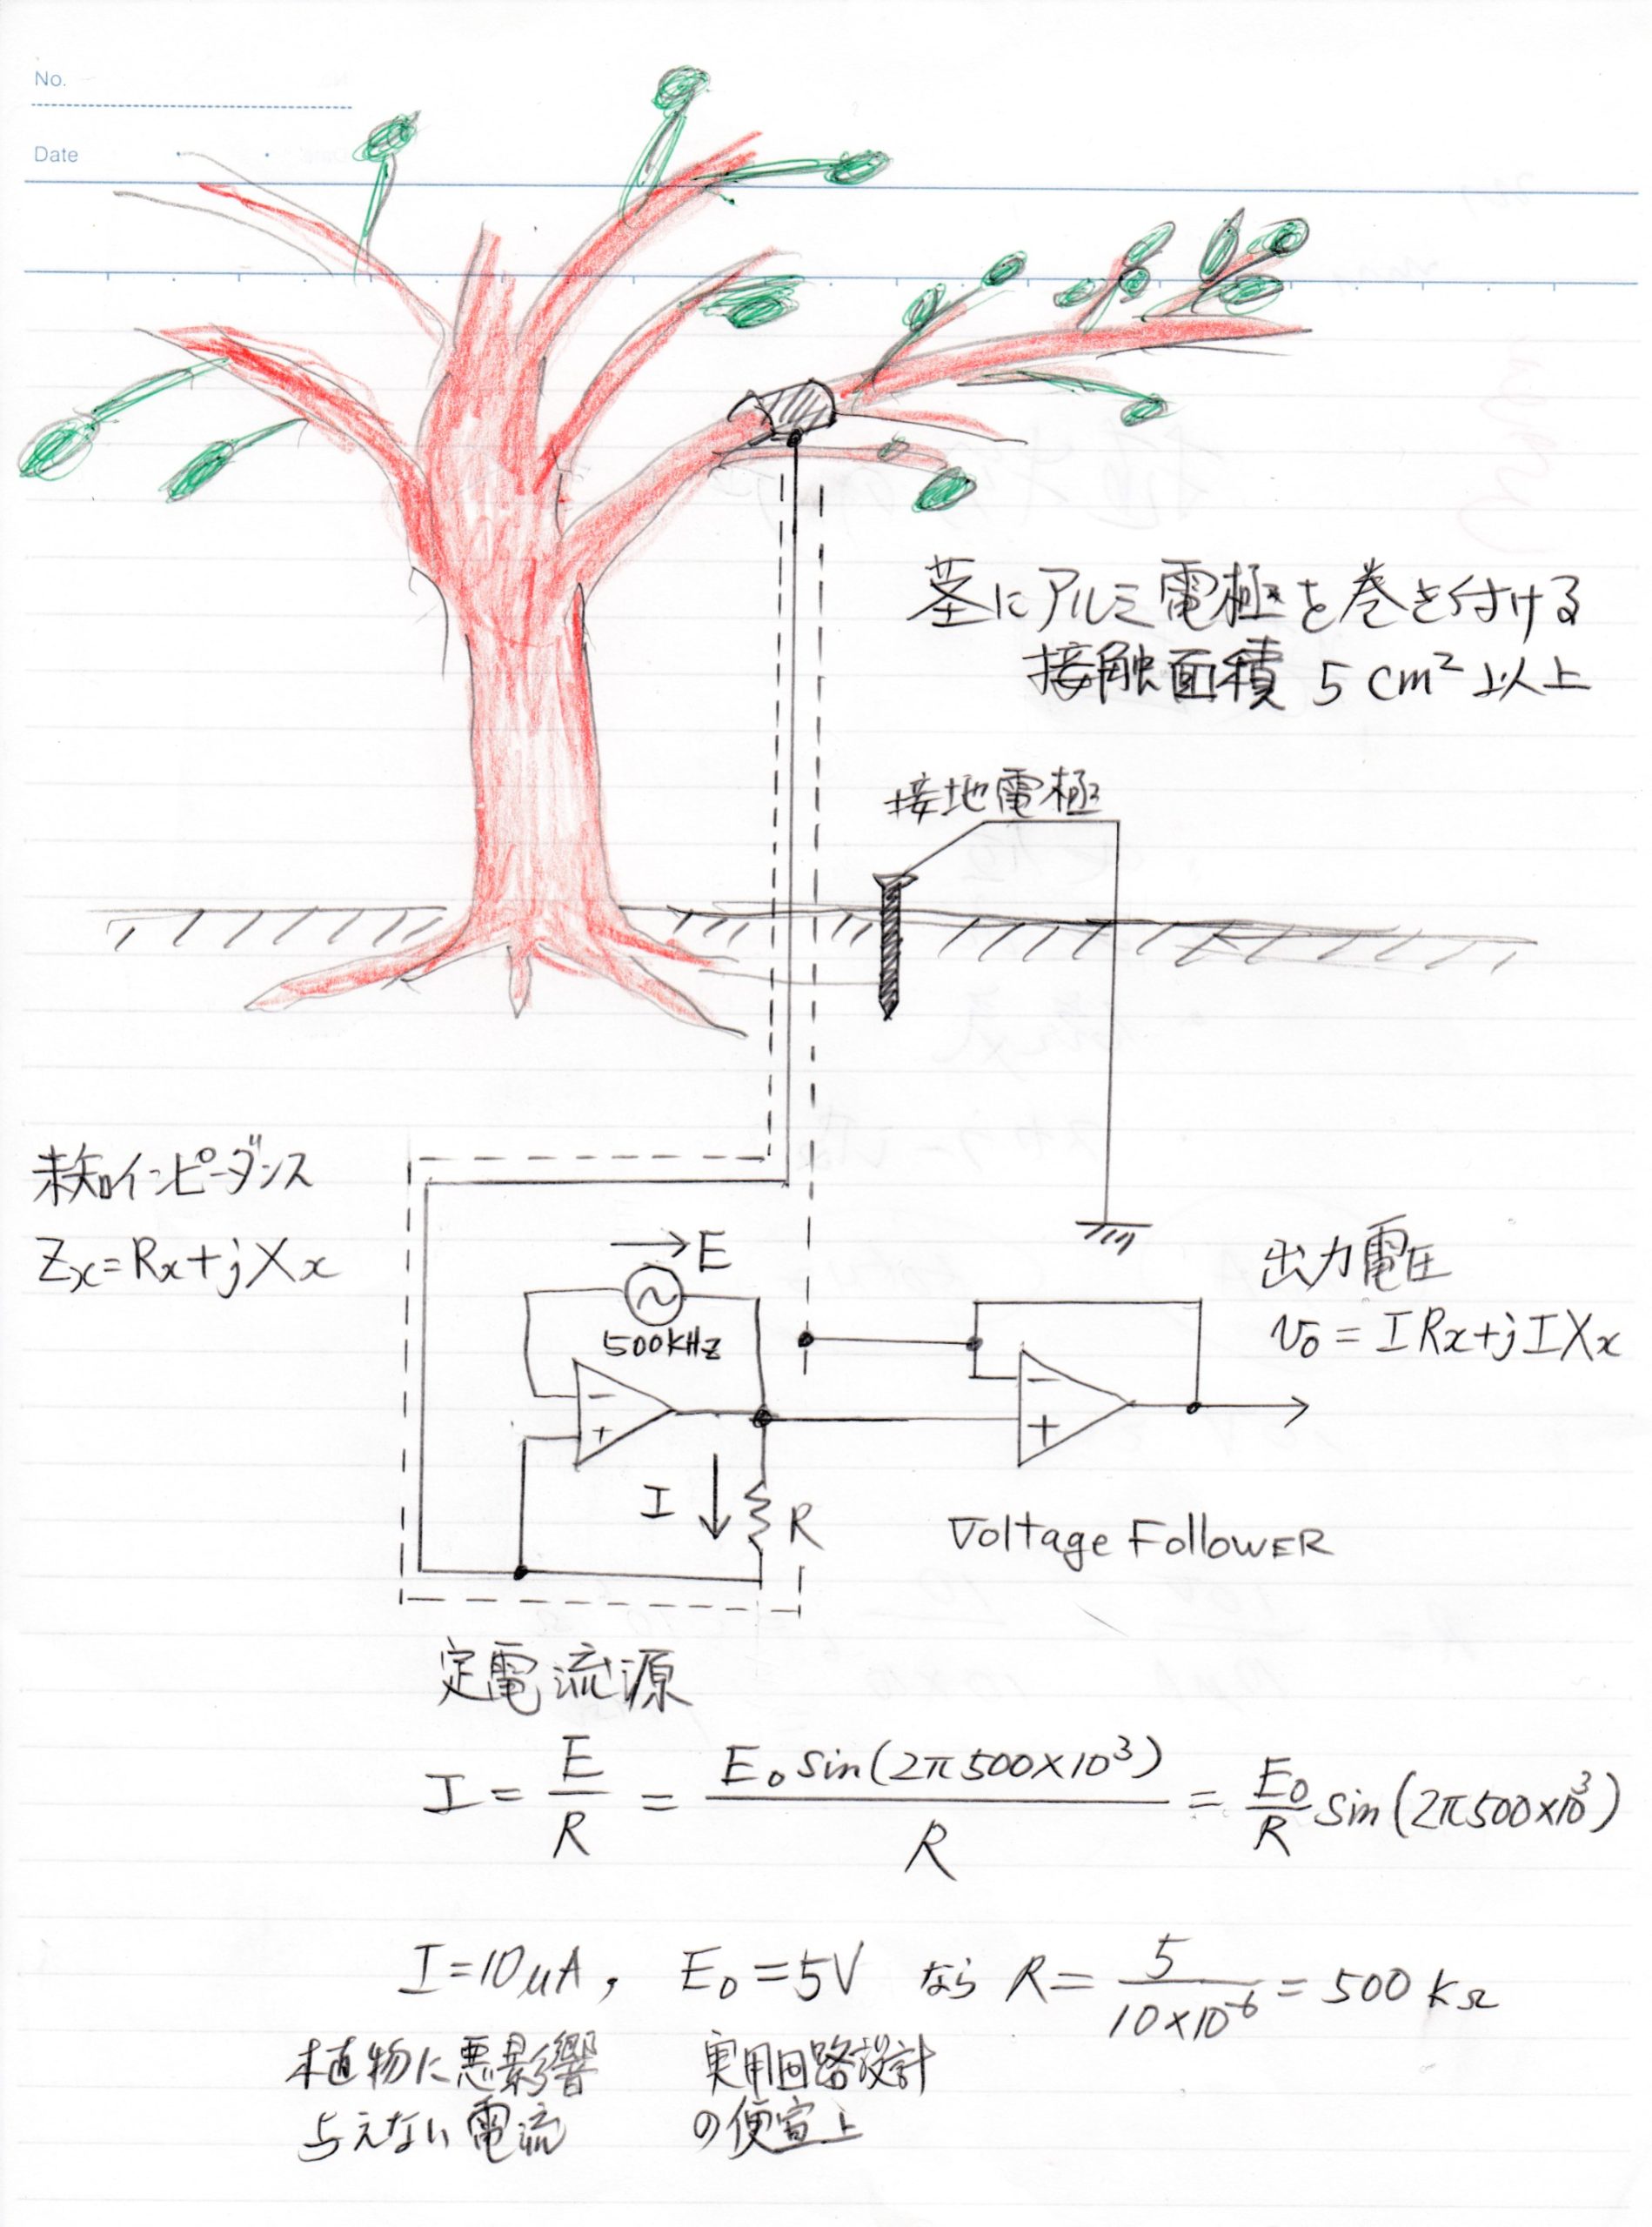 No.
Date
茎にアルミ電極を巻き付ける
接触面積 5 cm² 以上
接地電極
未知インピーダンス
Zx=Rx+jXx
E
500kHz
−
+
I
R
−
+
出力電圧
v₀ = IRx+jIXx
Voltage FOLLOWER
定電流源
I = E/R = E₀ sin(2π500×10³)/R = E₀/R sin(2π500×10³)
I=10μA, E₀=5V なら R= 5/10×10⁻⁶ = 500 kΩ
植物に悪影響 実用回路設計
与えない電流 の便宜上